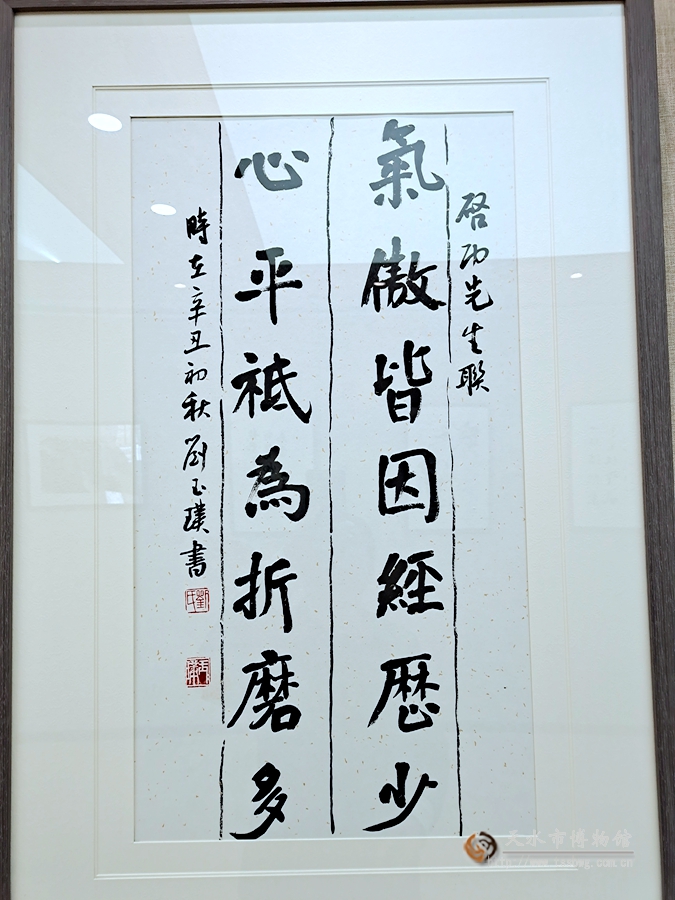 啓功先生联
氣傲皆因經歷少
心平祗為折磨多
時在辛丑初秋劉玉璞書
劉氏
玉璞
天水市博物馆